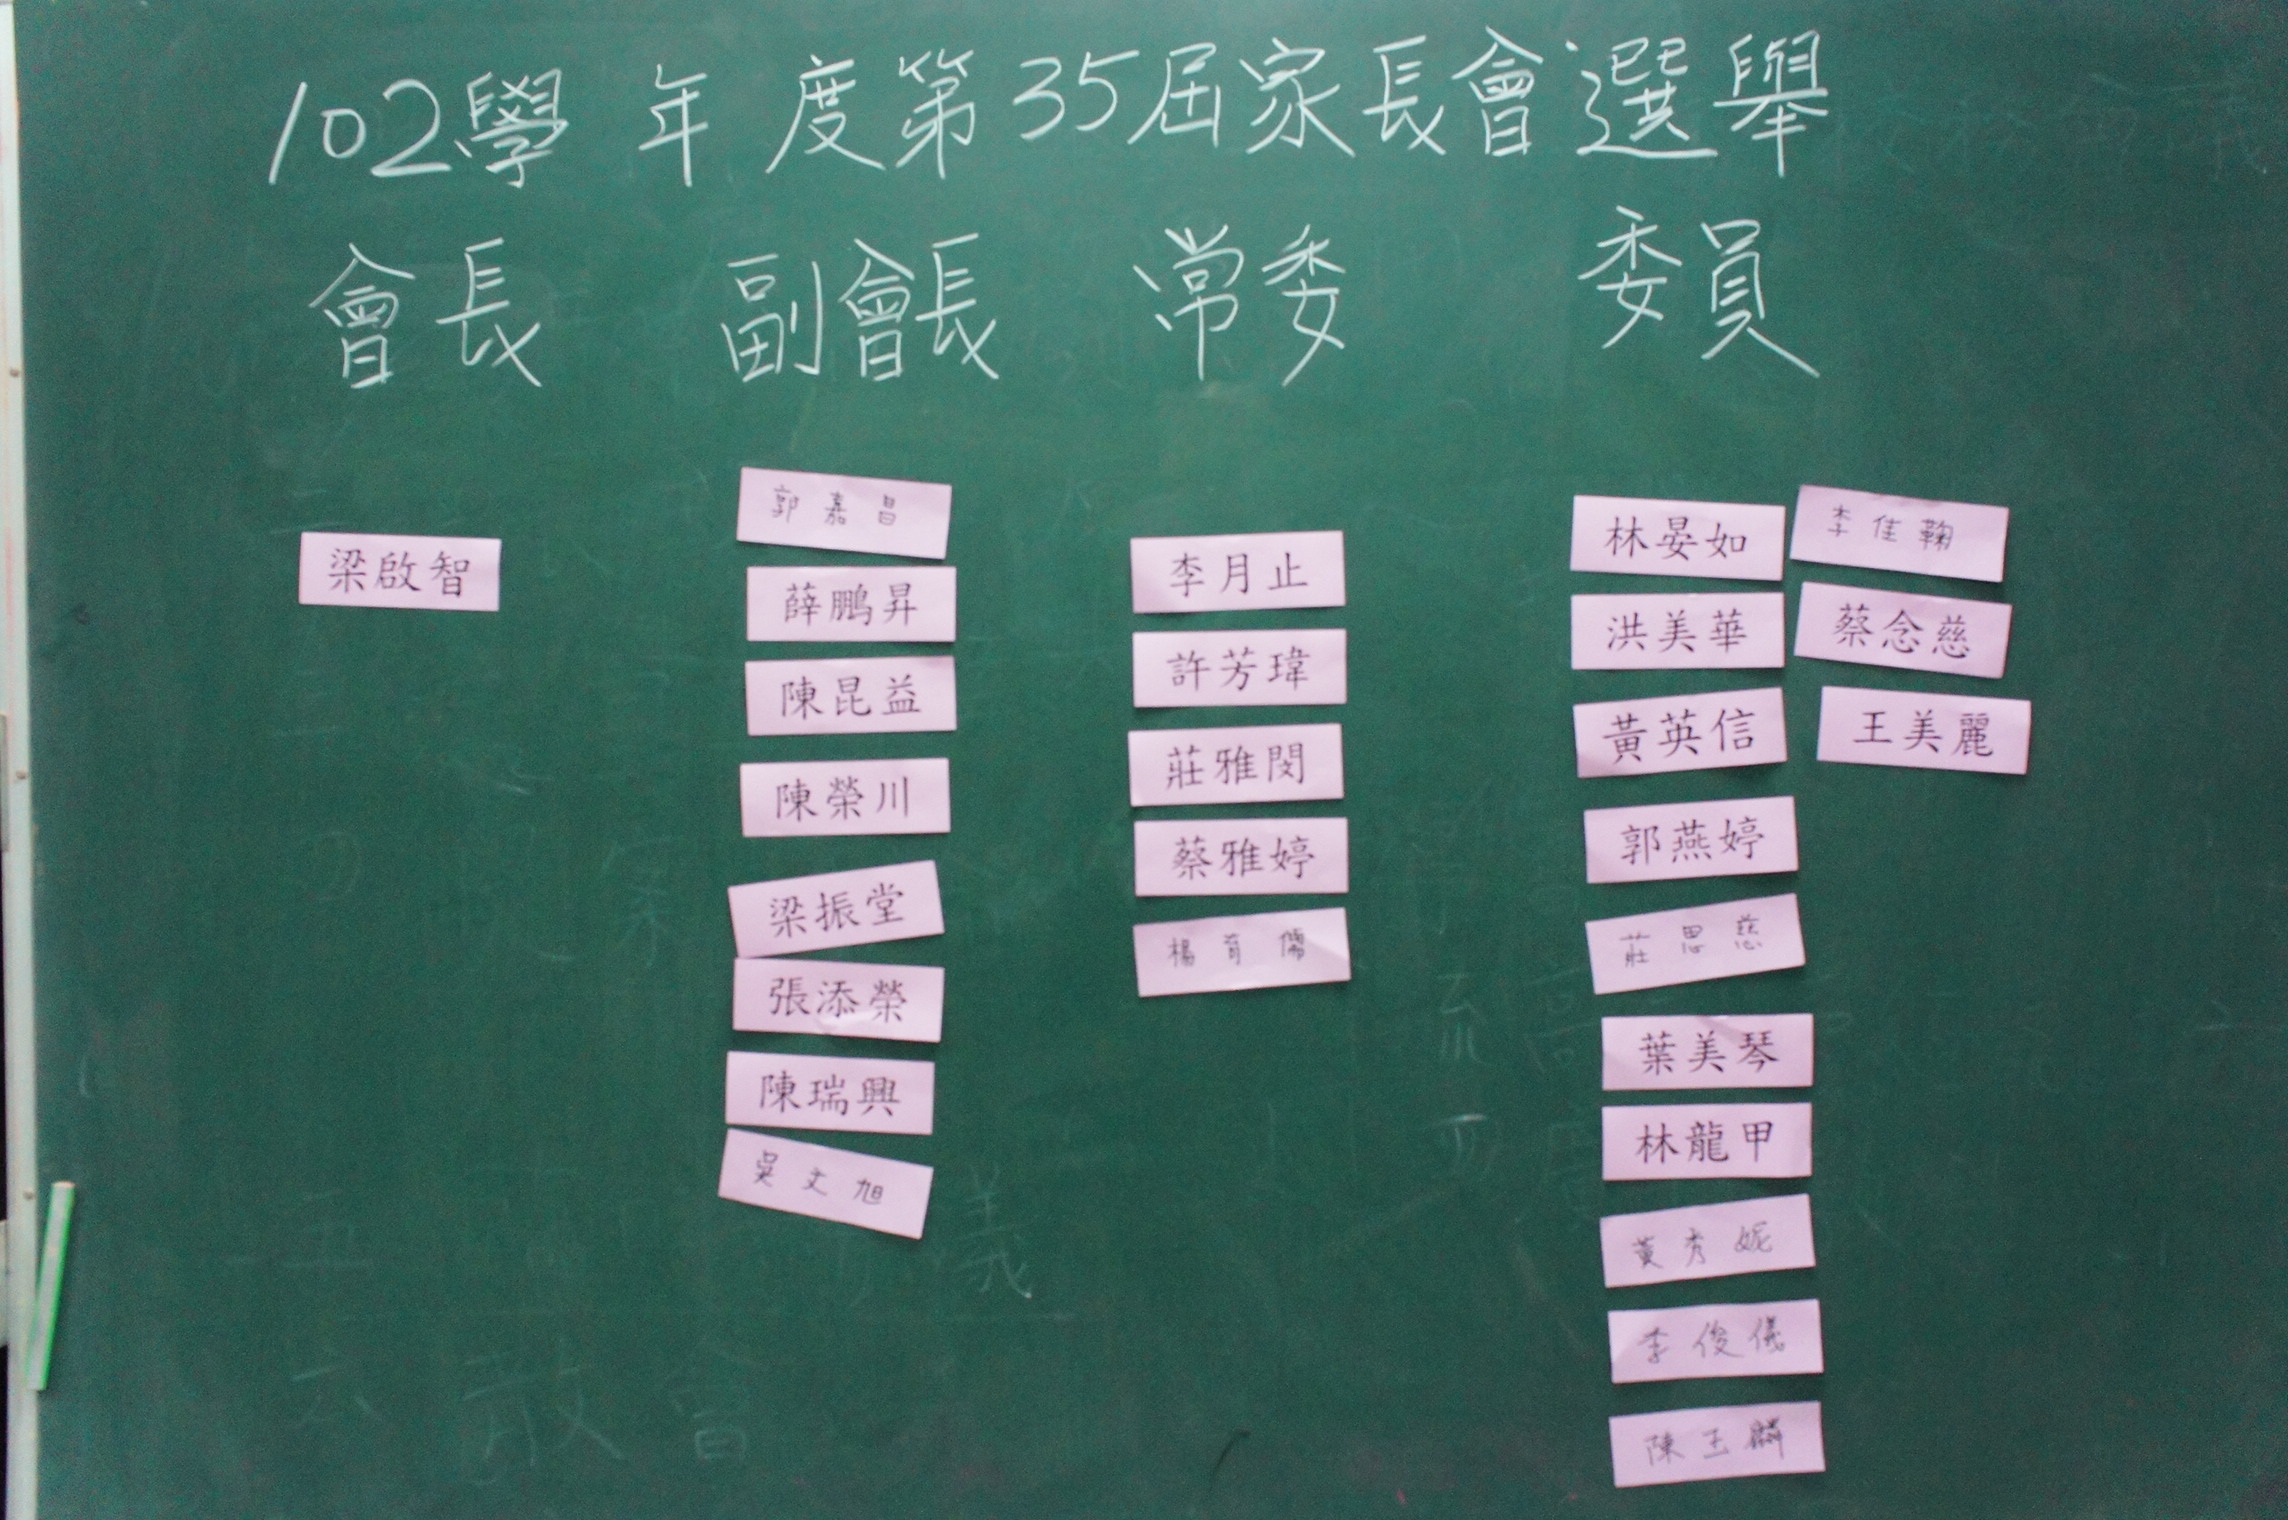 102學年度第35屆家長會選舉
會長 副會長 常委 委員
梁啟智
郭嘉昌
薛鵬昇
陳昆益
陳榮川
梁振堂
張添榮
陳瑞興
吳文旭
李月止
許芳瑋
莊雅閔
蔡雅婷
楊育儒
林晏如
洪美華
黃英信
郭燕婷
莊思慈
葉美琴
林龍甲
黃秀妮
李俊儀
陳玉麟
李佳鞠
蔡念慈
王美麗